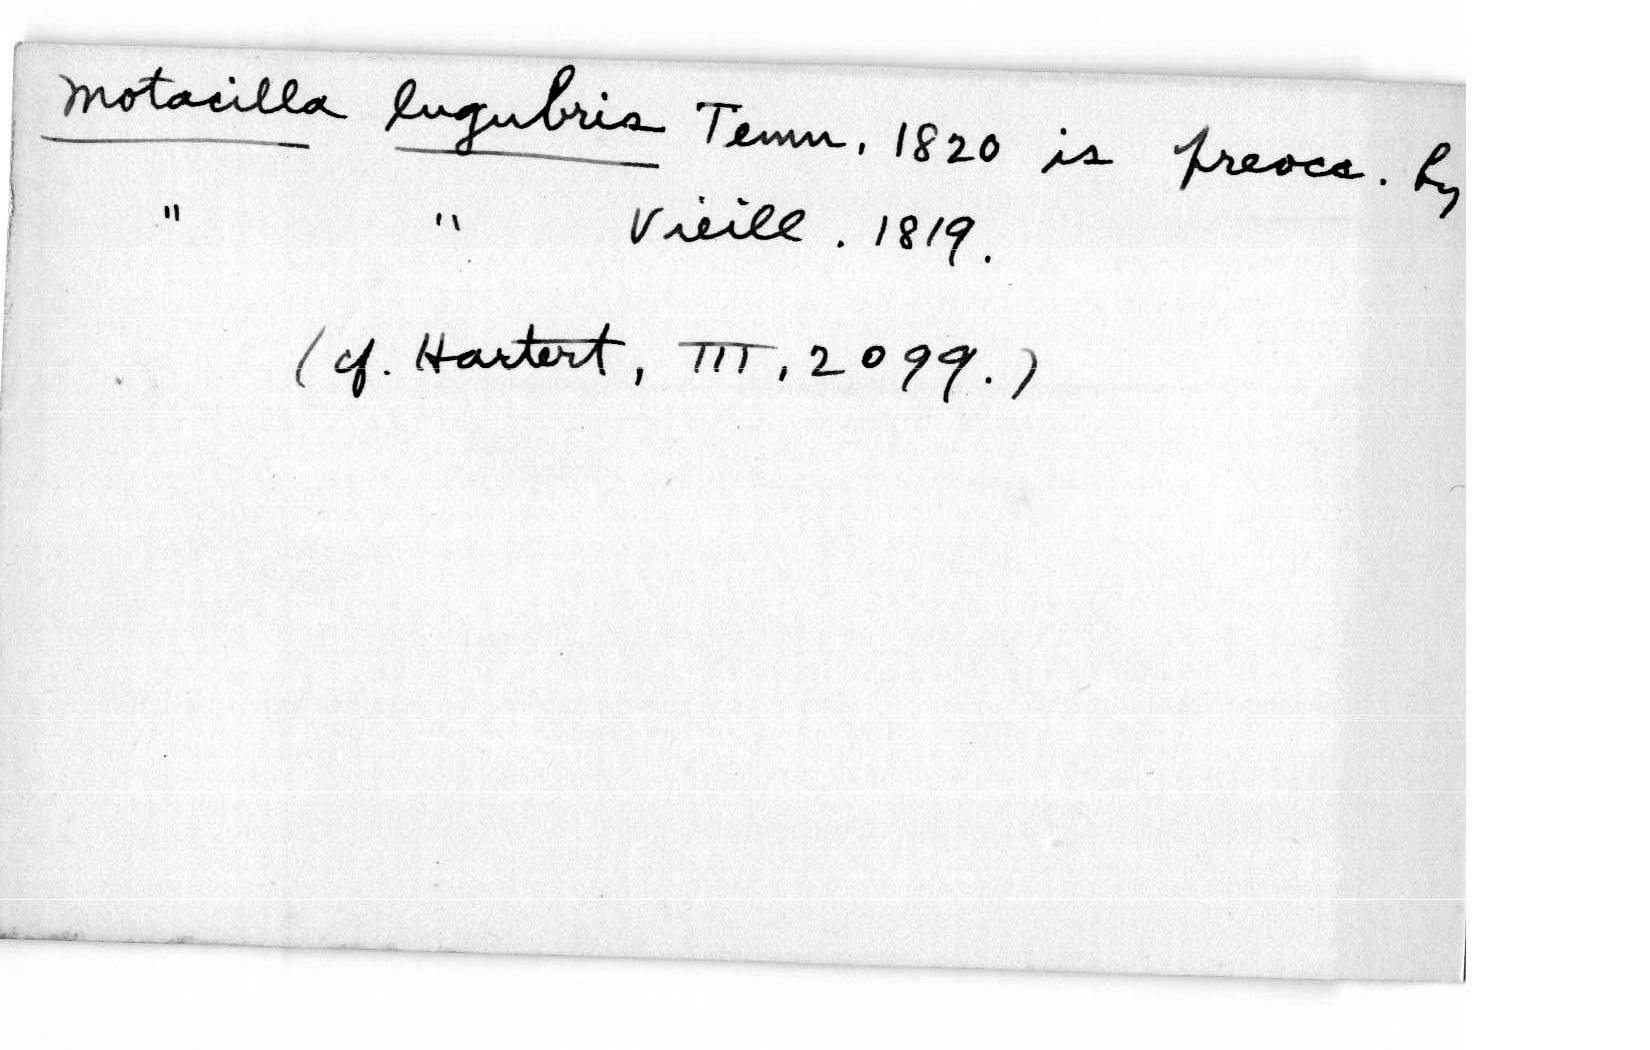 Motacilla lugubris Temm. 1820 is preocc. by
" " Vieill. 1819.
(cf. Hartert, III, 2099.)